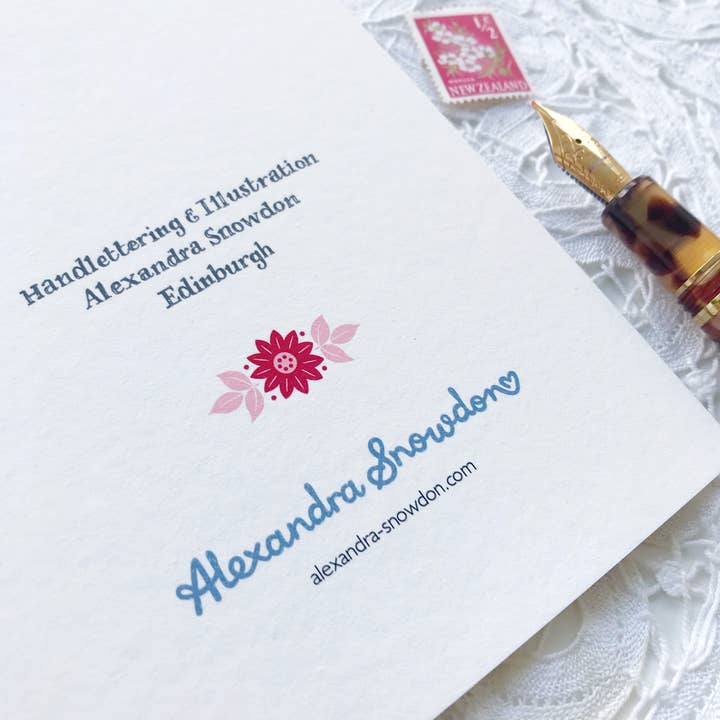 1 c/2
MANUKA
NEW ZEALAND
Handlettering & Illustration
Alexandra Snowdon
Edinburgh
Alexandra Snowdon
alexandra-snowdon.com